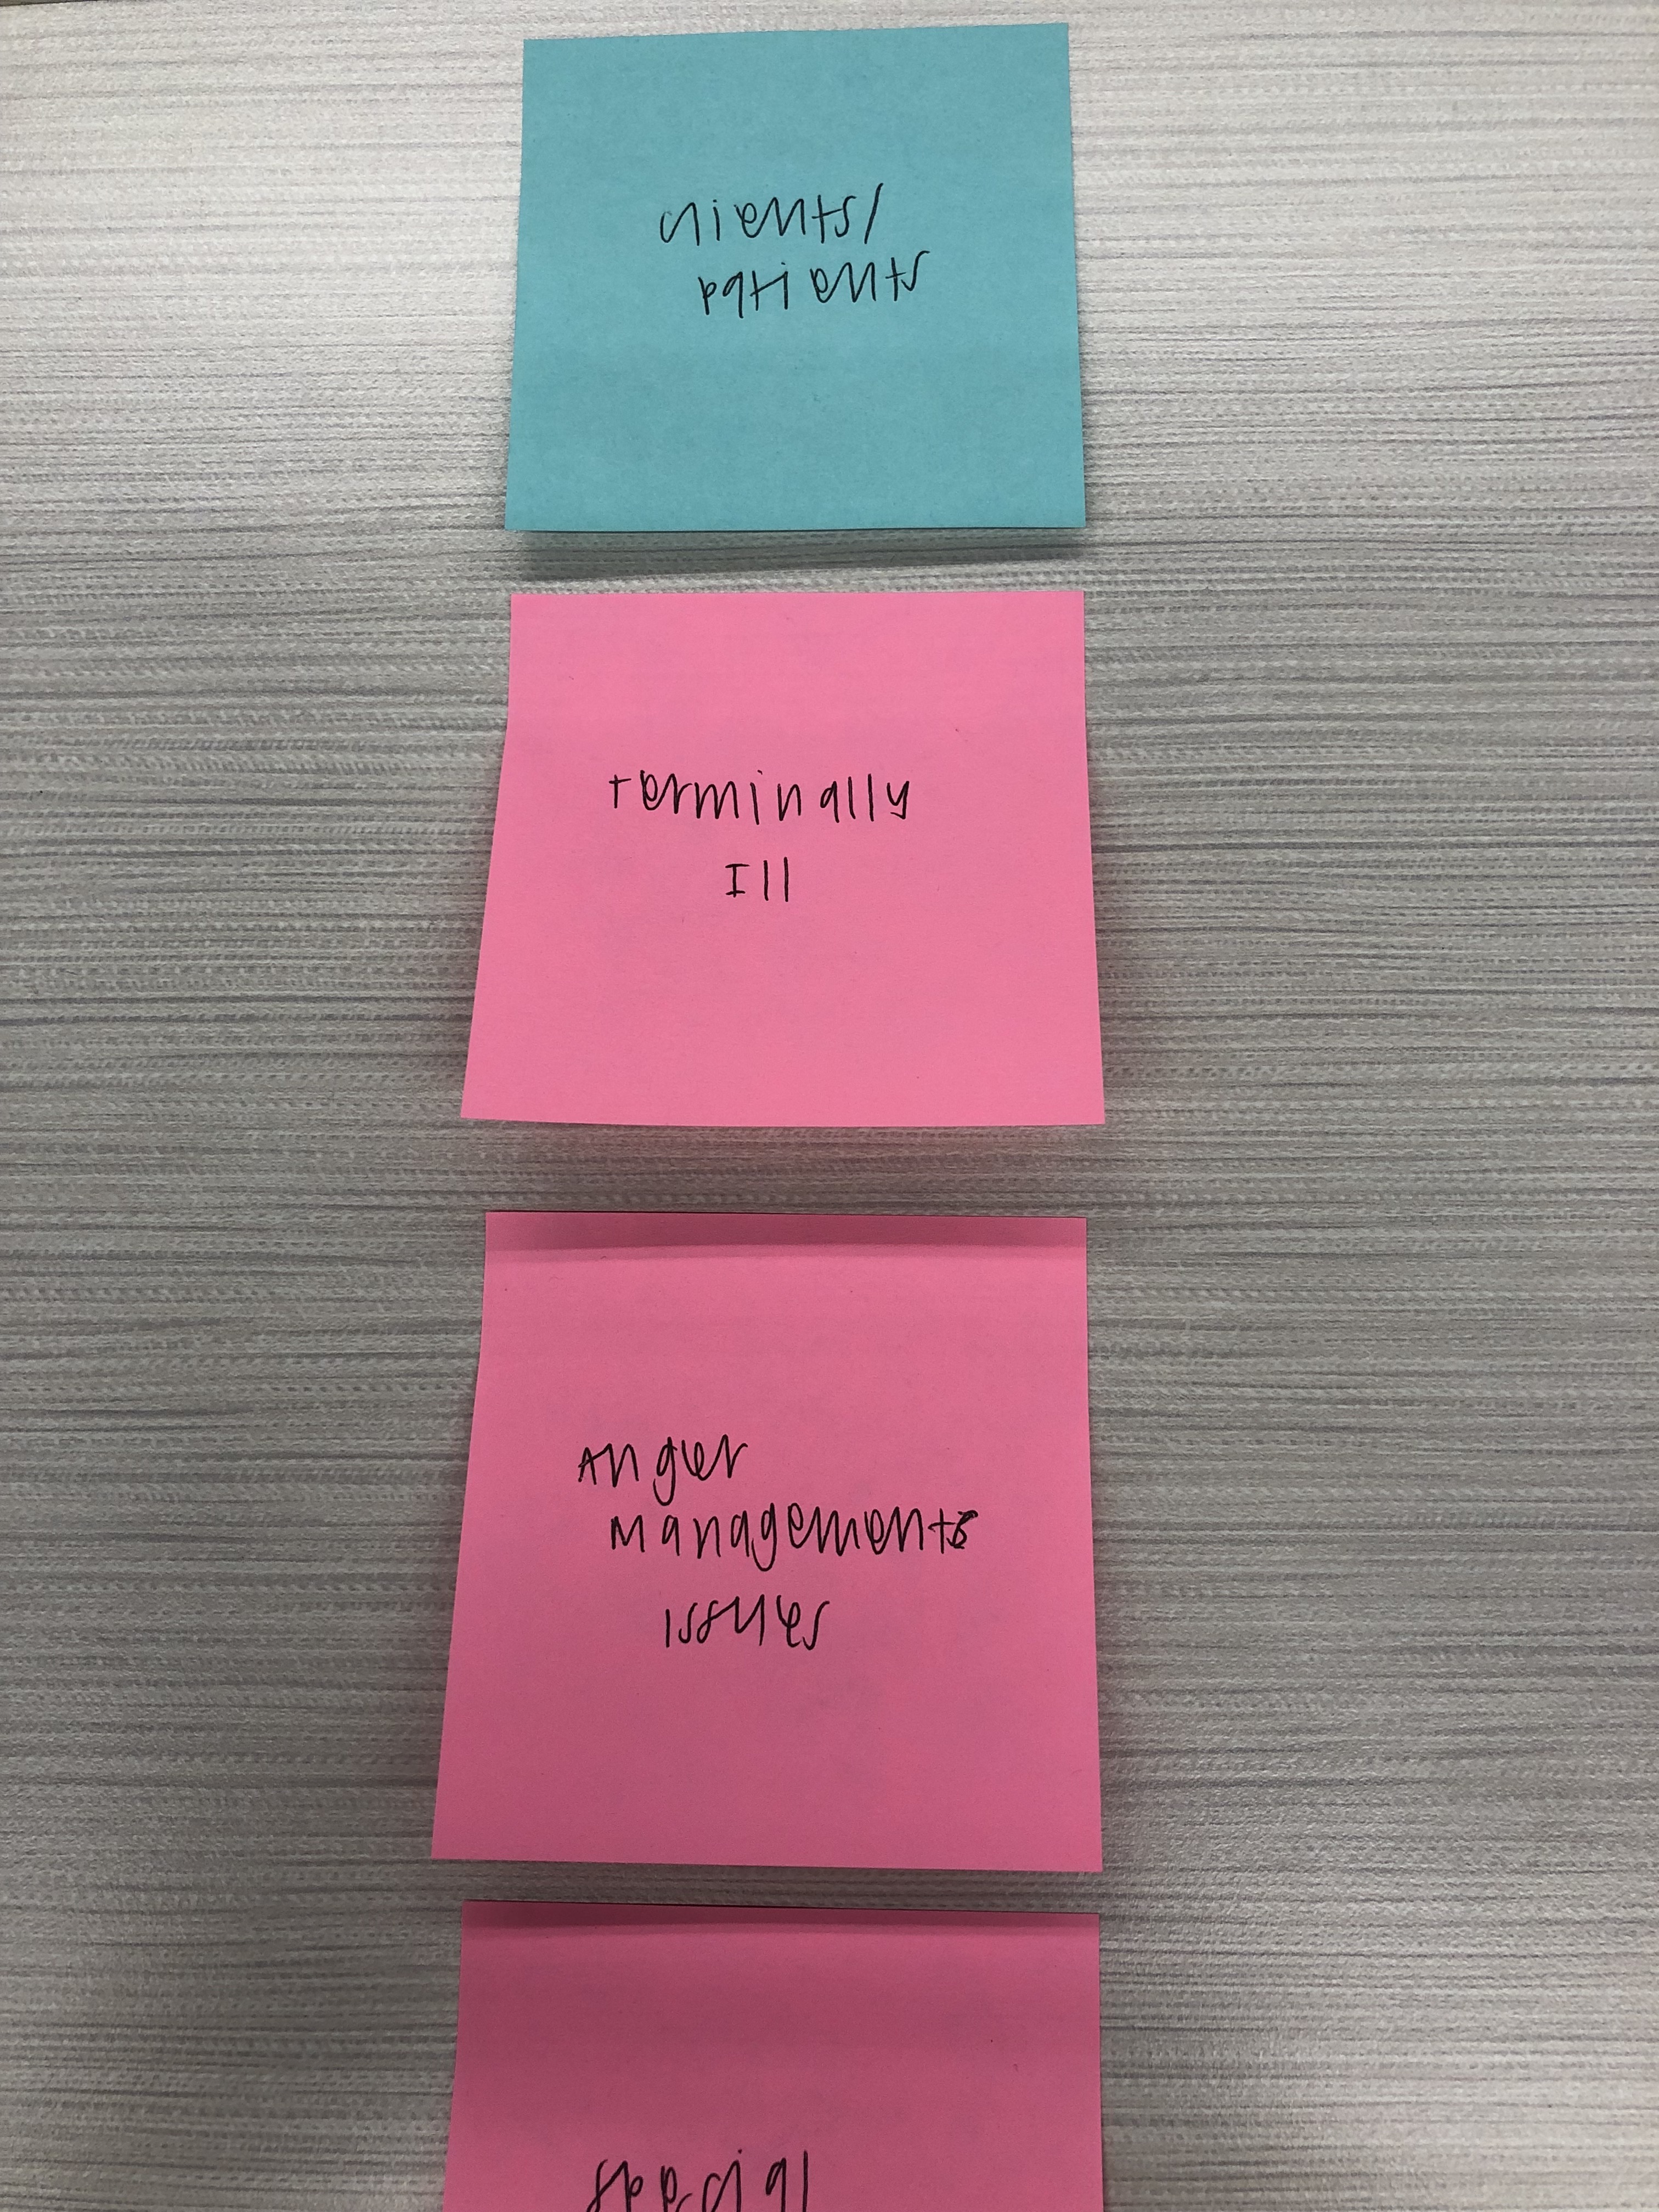 clients/
patients
terminally
Ill
Anger
Management
issues
special